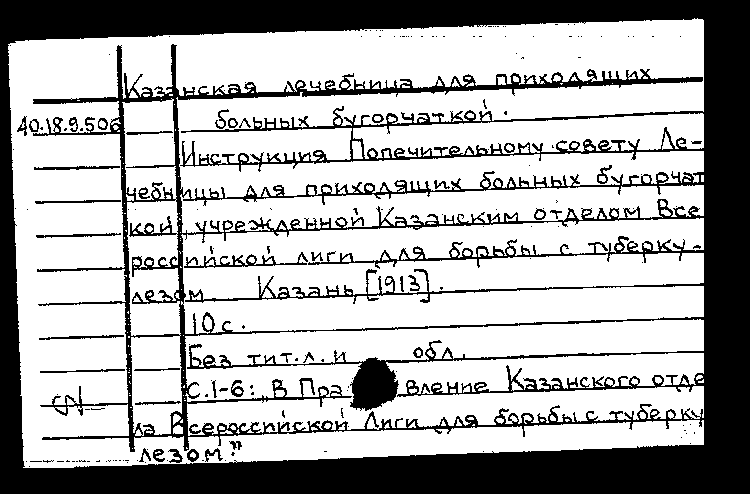 Казанская лечебница для приходящих
40.18.9.506 больных бугорчаткой.
Инструкция Попечительному совету Ле-
чебницы для приходящих больных бугорчат
кой, учрежденной Казанским отделом Все
российской лиги для борьбы с туберку-
лезом. Казань, [1913].
10 с.
Без тит. л. и обл.
С. 1-6: „В Правление Казанского отде
ла Всероссийской Лиги для борьбы с туберку
лезом"